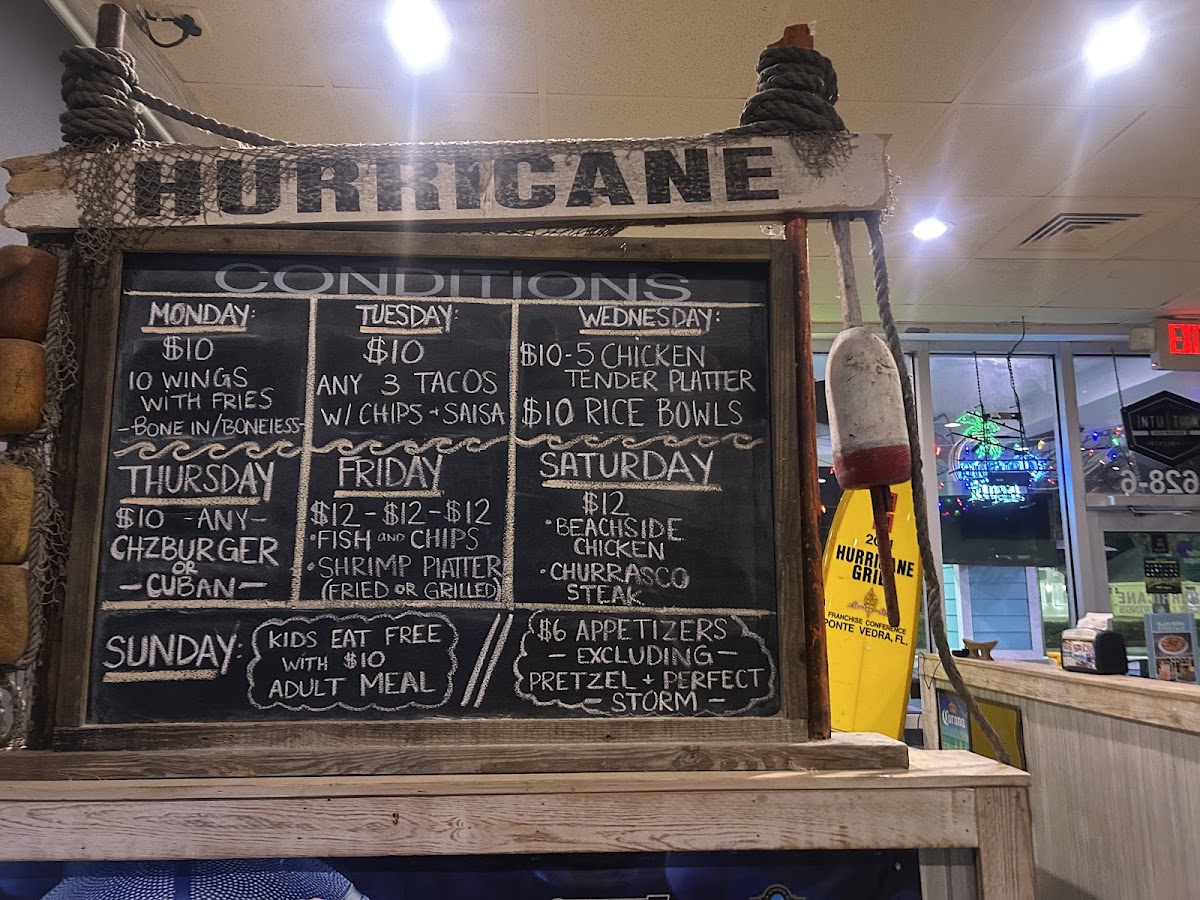 HURRICANE
CONDITIONS
MONDAY:
$10
10 WINGS
WITH FRIES
-BONE IN/BONELESS-
TUESDAY:
$10
ANY 3 TACOS
W/ CHIPS + SALSA
WEDNESDAY:
$10-5 CHICKEN
TENDER PLATTER
$10 RICE BOWLS
THURSDAY
$10 -ANY-
CHZBURGER
OR
-CUBAN-
FRIDAY
$12-$12-$12
•FISH AND CHIPS
•SHRIMP PLATTER
(FRIED OR GRILLED)
SATURDAY
$12
•BEACHSIDE
CHICKEN
•CHURRASCO
STEAK
SUNDAY:
KIDS EAT FREE
WITH $10
ADULT MEAL
//
$6 APPETIZERS
-EXCLUDING-
PRETZEL + PERFECT
-STORM-
HURRICANE
FRANCHISE CONFERENCE
PONTE VEDRA, FL.
Corona
628-6